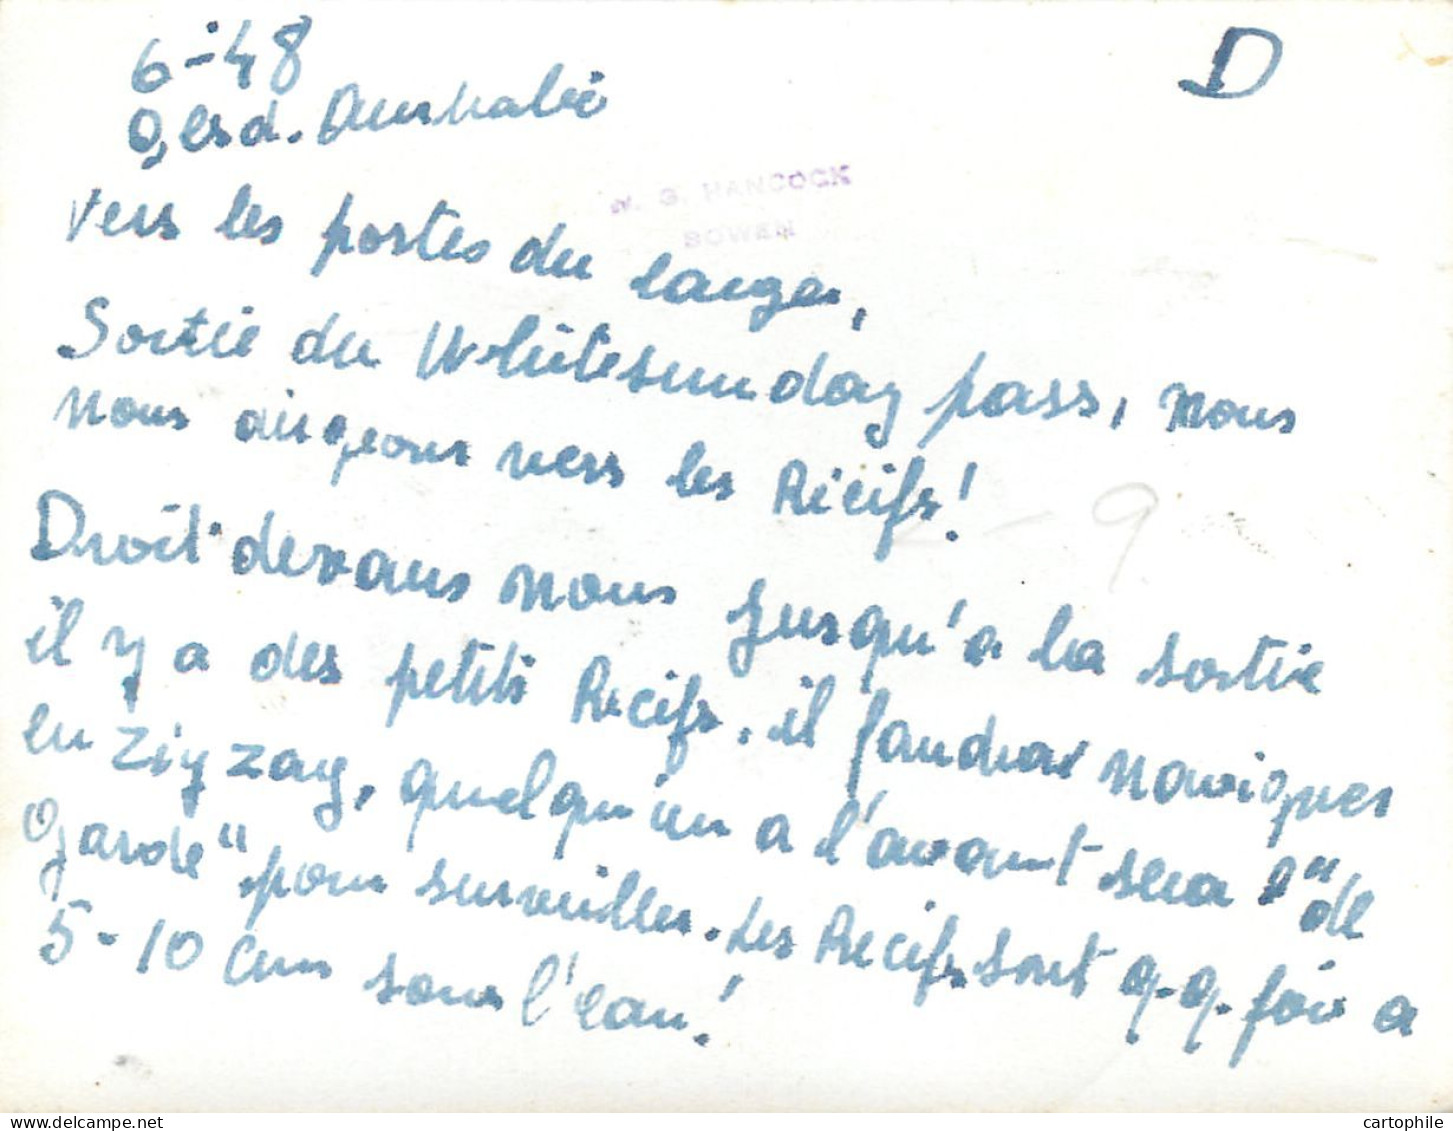 6-48
D
Qlsd. Australie
W. G. HANCOCK
BOWEN
vers les portes du large,
Sortie du Whitesunday pass, nous
nous dirigeons vers les Récifs!
2-9
Droit devant nous jusqu'a la sortie
il y a des petits Recifs, il faudra naviguer
en zig zag, quelqu'un a l'avant sera "de
garde" pour surveiller. Les Recifs sont q.q. fois a
5-10 cm sous l'eau!
cartophile